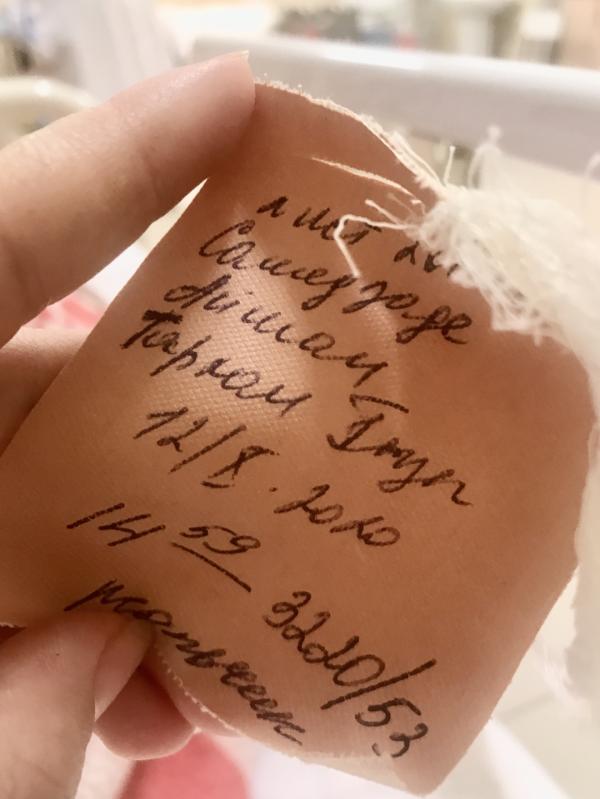 Самедзаде
Айшан
Тархан
12/X. 2020
14 59
3220/53
мальчик